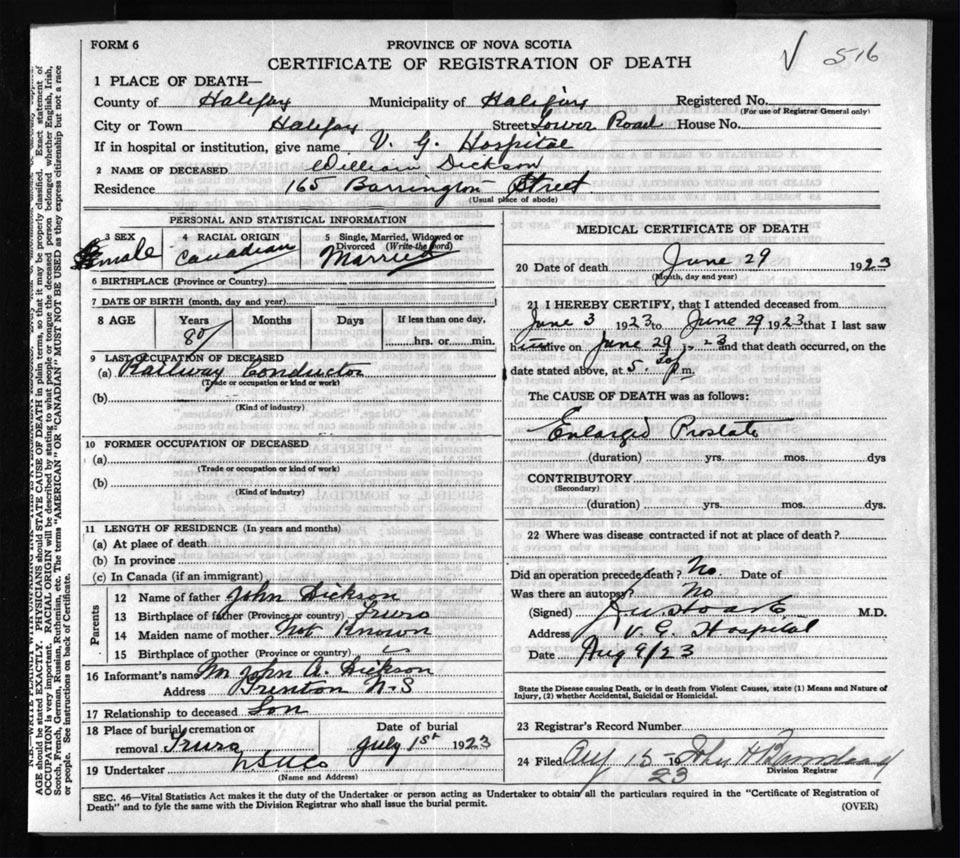 FORM 6
PROVINCE OF NOVA SCOTIA
CERTIFICATE OF REGISTRATION OF DEATH
V 516
1 PLACE OF DEATH—
County of Halifax Municipality of Halifax Registered No.
(For use of Registrar General only)
City or Town Halifax Street Tower Road House No.
If in hospital or institution, give name V. G. Hospital
2 NAME OF DECEASED William Dickson
Residence 165 Barrington Street
(Usual place of abode)
PERSONAL AND STATISTICAL INFORMATION
3 SEX 4 RACIAL ORIGIN 5 Single, Married, Widowed or Divorced (Write the word)
male Canadian Married
6 BIRTHPLACE (Province or Country)
7 DATE OF BIRTH (month, day and year)
8 AGE Years Months Days If less than one day,
80 hrs. or min.
9 LAST OCCUPATION OF DECEASED
(a) Railway Conductor
(Trade or occupation or kind or work)
(b)
(Kind of industry)
10 FORMER OCCUPATION OF DECEASED
(a)
(Trade or occupation or kind of work)
(b)
(Kind of industry)
11 LENGTH OF RESIDENCE (In years and months)
(a) At place of death
(b) In province
(c) In Canada (if an immigrant)
Parents
12 Name of father John Dickson
13 Birthplace of father (Province or country) Truro
14 Maiden name of mother Not Known
15 Birthplace of mother (Province or country)
16 Informant's name Mr John A. Dickson
Address Trenton N-S
17 Relationship to deceased Son
18 Place of burial, cremation or Date of burial
removal Truro July 1st 1923
19 Undertaker
(Name and Address)
MEDICAL CERTIFICATE OF DEATH
20 Date of death June 29 1923
(Month, day and year)
21 I HEREBY CERTIFY, that I attended deceased from
June 3 1923 to June 29 1923 that I last saw
him alive on June 29 1923 and that death occurred, on the
date stated above, at 5. p.m.
The CAUSE OF DEATH was as follows:
Enlarged Prostate
(duration) yrs. mos. dys
CONTRIBUTORY
(Secondary)
(duration) yrs. mos. dys
22 Where was disease contracted if not at place of death?
Did an operation precede death? No. Date of
Was there an autopsy? No
(Signed) M.D.
Address V. G. Hospital
Date Aug 9/23
State the Disease causing Death, or in death from Violent Causes, state (1) Means and Nature of
Injury, (2) whether Accidental, Suicidal or Homicidal.
23 Registrar's Record Number
24 Filed Aug 15 19 John H
23 Division Registrar
SEC. 46—Vital Statistics Act makes it the duty of the Undertaker or person acting as Undertaker to obtain all the particulars required in the "Certificate of Registration of
Death" and to fyle the same with the Division Registrar who shall issue the burial permit.
(OVER)
AGE should be stated EXACTLY. PHYSICIANS should STATE CAUSE OF DEATH in plain terms, so that it may be properly classified. Exact statement of
OCCUPATION is very important. RACIAL ORIGIN will be described by stating to what people or tongue the deceased person belonged whether English, Irish,
Scotch, French, German, Russian, Ruthenian, etc. The terms "AMERICAN" OR "CANADIAN" MUST NOT BE USED as they express citizenship but not a race
or people. See instructions on back of Certificate.